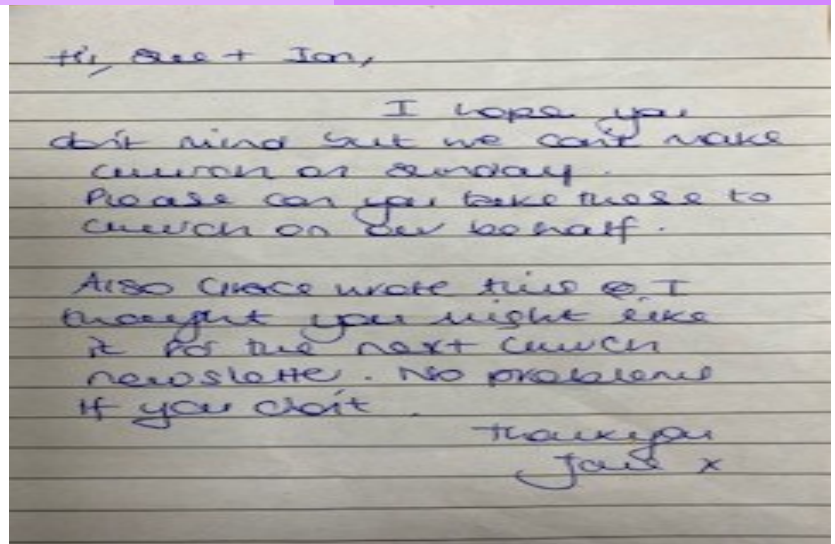 Hi, Sue + Ian,
I hope you
don't mind but we can't make
church on Sunday.
Please can you take these to
church on our behalf.
Also Grace wrote this & I
thought you might like
it for the next church
newsletter. No problems
if you don't.
Thankyou
x